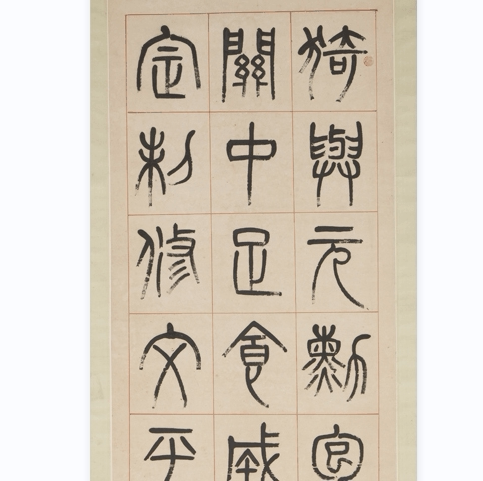 猗與元勳包
關中足食成
定制修文平